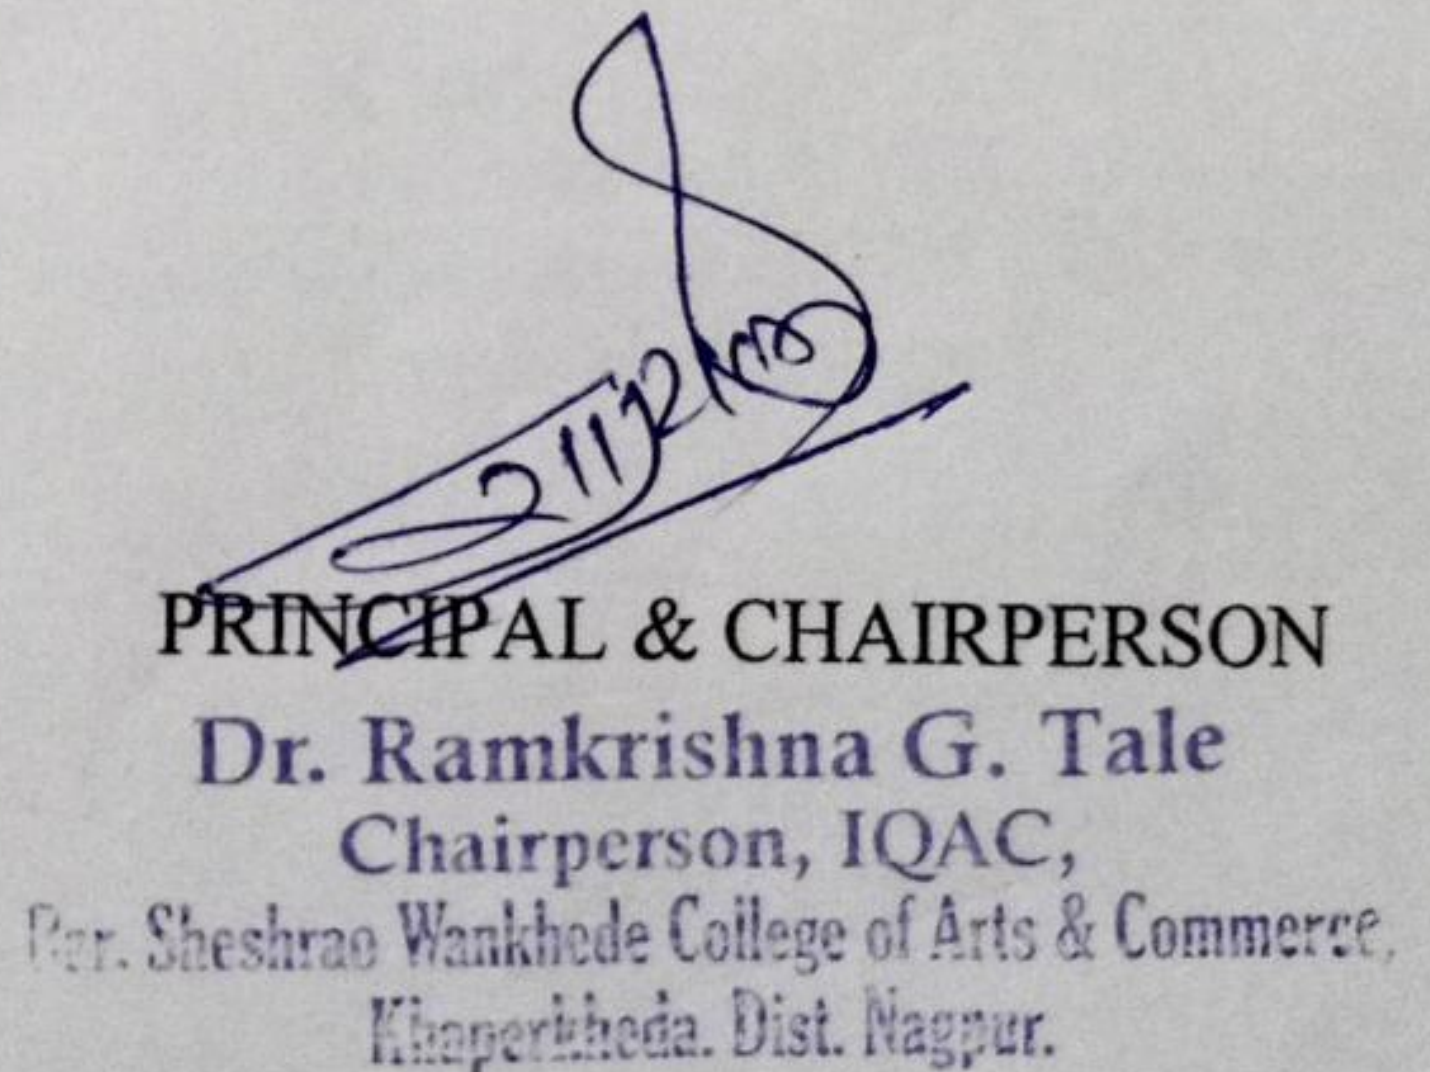 PRINCIPAL & CHAIRPERSON
Dr. Ramkrishna G. Tale
Chairperson, IQAC,
Per. Sheshrao Wankhede College of Arts & Commerce,
Khaperkheda. Dist. Nagpur.